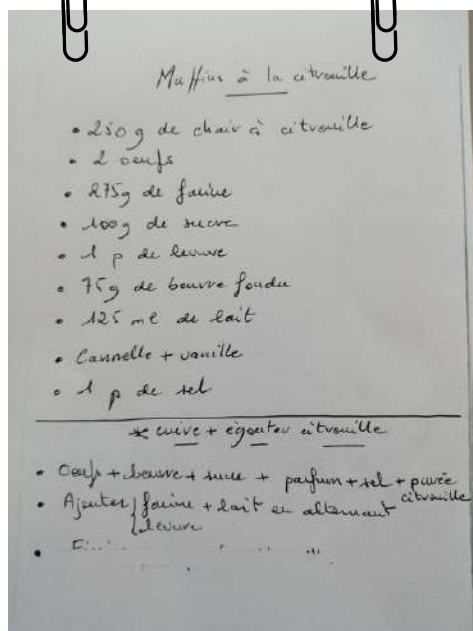 Muffins à la citrouille
• 250 g de chair à citrouille
• 2 oeufs
• 275g de farine
• 100g de sucre
• 1 p de levure
• 75g de beurre fondu
• 125 ml de lait
• Cannelle + vanille
• 1 p de sel
* cuire + égouter citrouille
• Oeufs + beurre + sucre + parfum + sel + purée citrouille
• Ajouter { farine + lait en alternant
levure